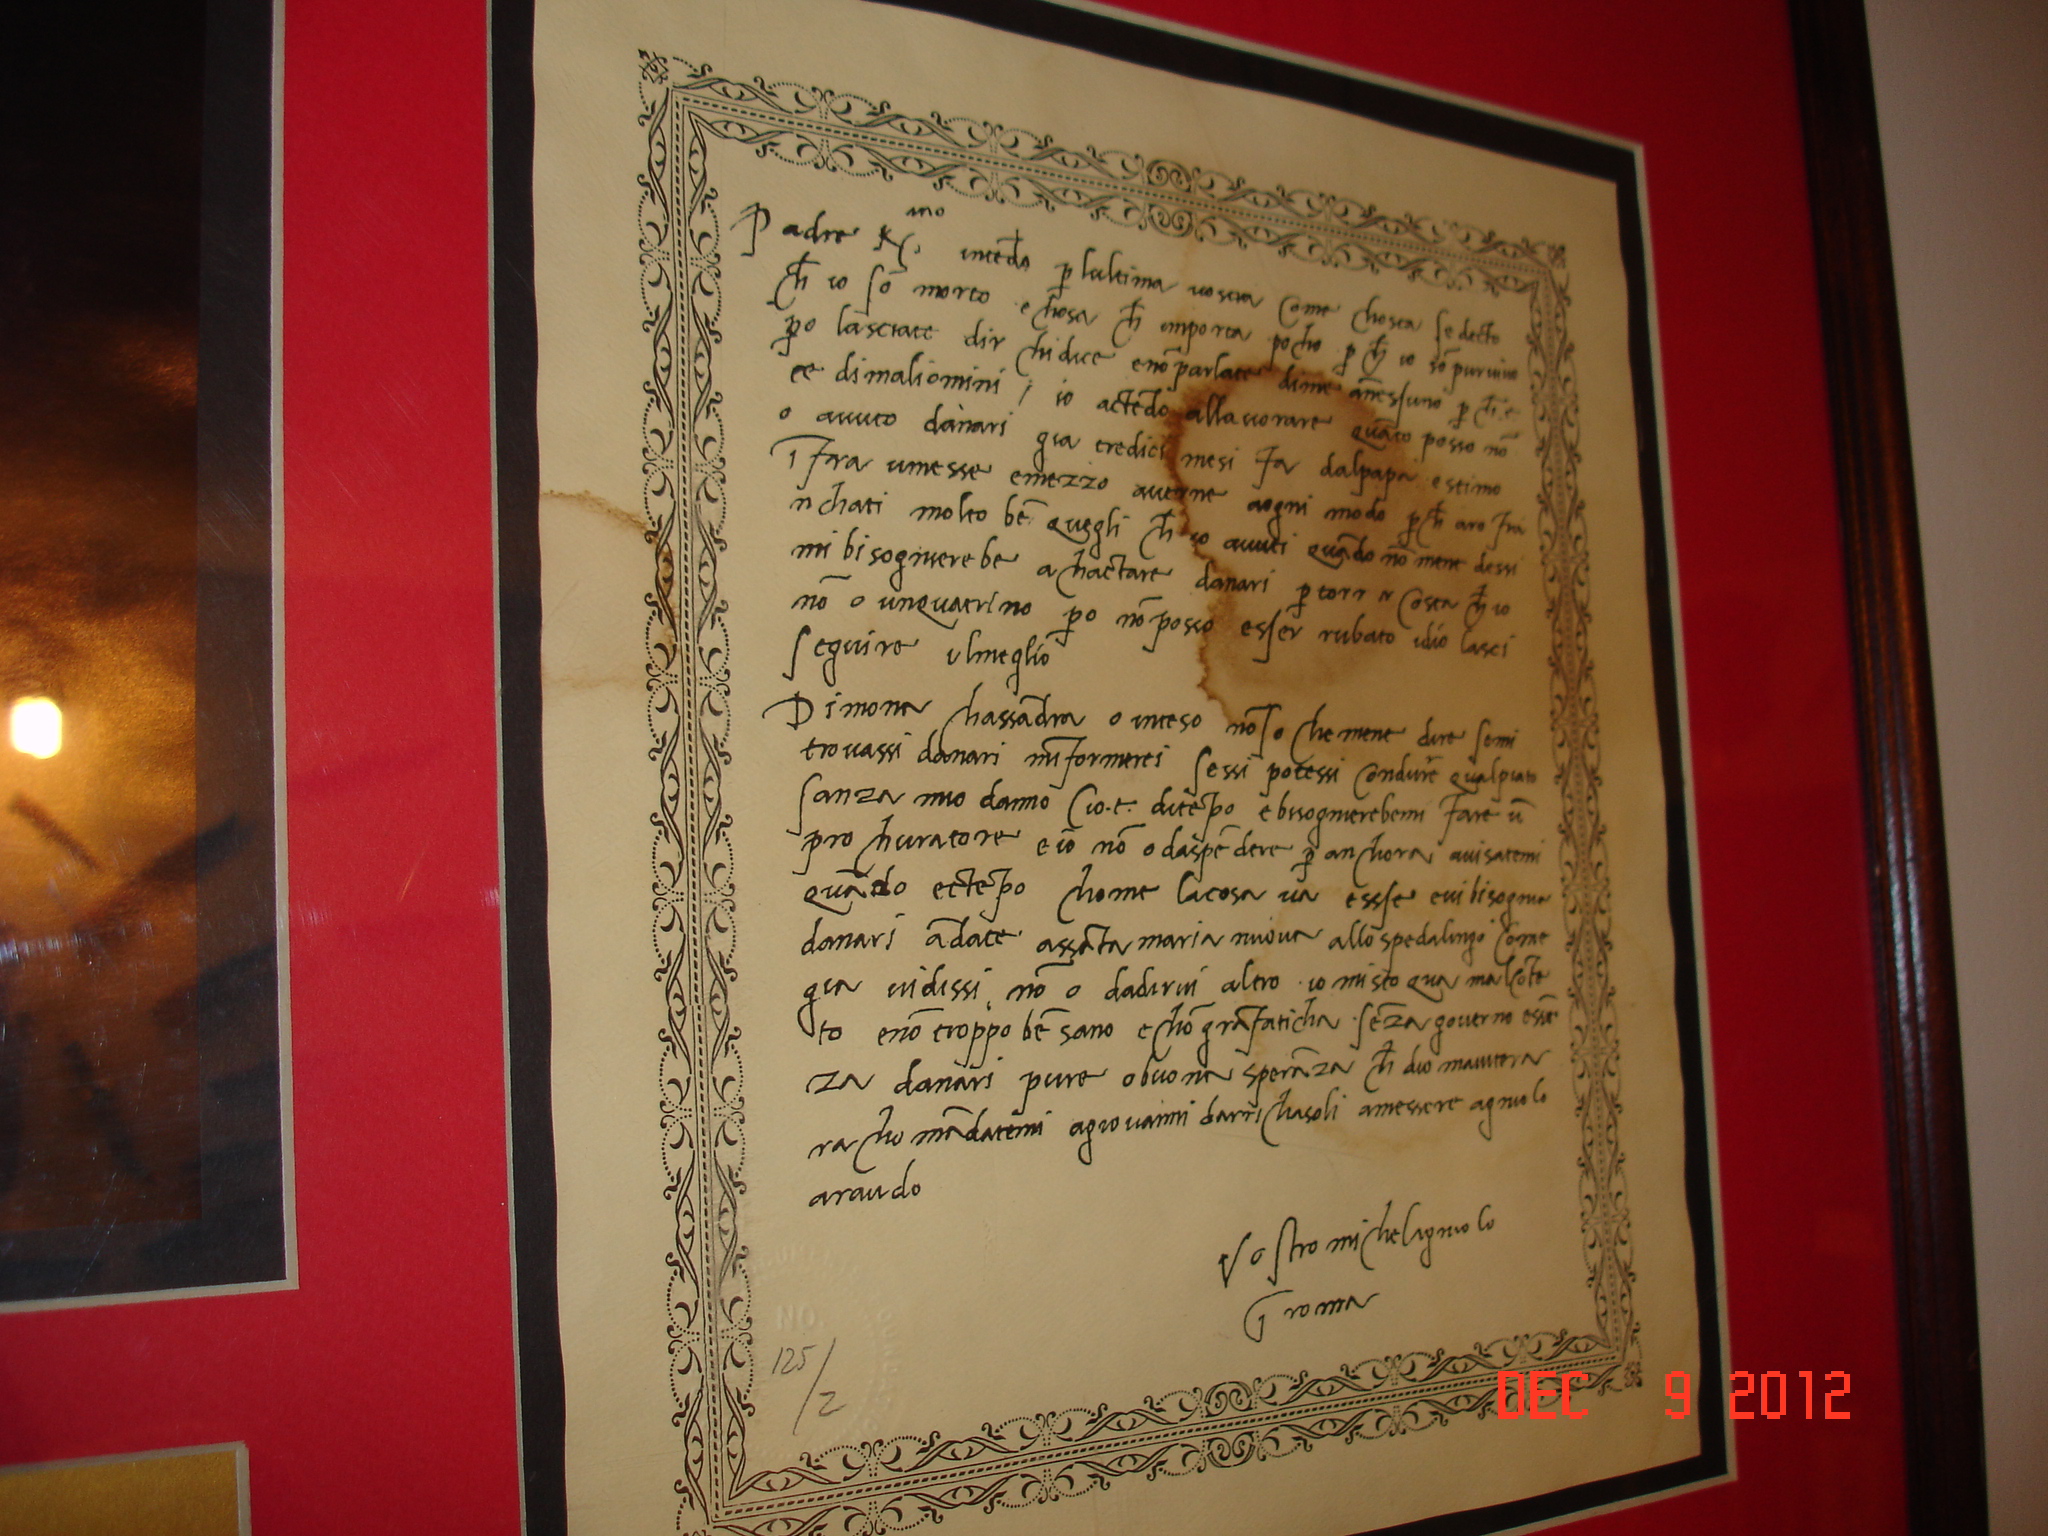 Padre K.mo intēdo p lultima vostra come chostà se decto
ch io sō morto e chosa ch importa pocho p ch io sō pur vivo
po lasciate dir chi dice e nō parlate di me a nessuno p ch e
e di mali omini / io actēdo allavorare quāto posso nō
o avuto danari gia tredici mesi fa dal papa e stimo
ī fra un messe emezzo averne aogni modo p ch aro fra
nchati molto bē quegli ch io avuti quādo nō mene dessi
mi bisognierebe achactare danari p torna costà ch io
nō o unquatrino po nō posso esser rubato idio lasci
seguire ilmeglio
Di mona chassādra o inteso nō so che mene dire se mi
trovassi danari minformerei sessi potessi condure qua lpiato
sanza mio danno cio.e. di tēpo e bisognierebemi fare ū
prochuratore e io nō o daspēdere p anchora avisatemi
quādo ettēpo chome la cosa va esse evi bisognia
danari ādate assāta maria nuova allo spedalingo come
gia vi dissi nō o dadirvi altro io misto qua malcōtē
to enō troppo bē sano e chō grā faticha sēza governo e sēn
za danari pure o buona sperāza ch dio maiutera
rachomādatemi agiovanni darrichasoli amessere agniolo
araudo
Vostro michelagniolo
ī roma
NO.
125/2
DEC 9 2012